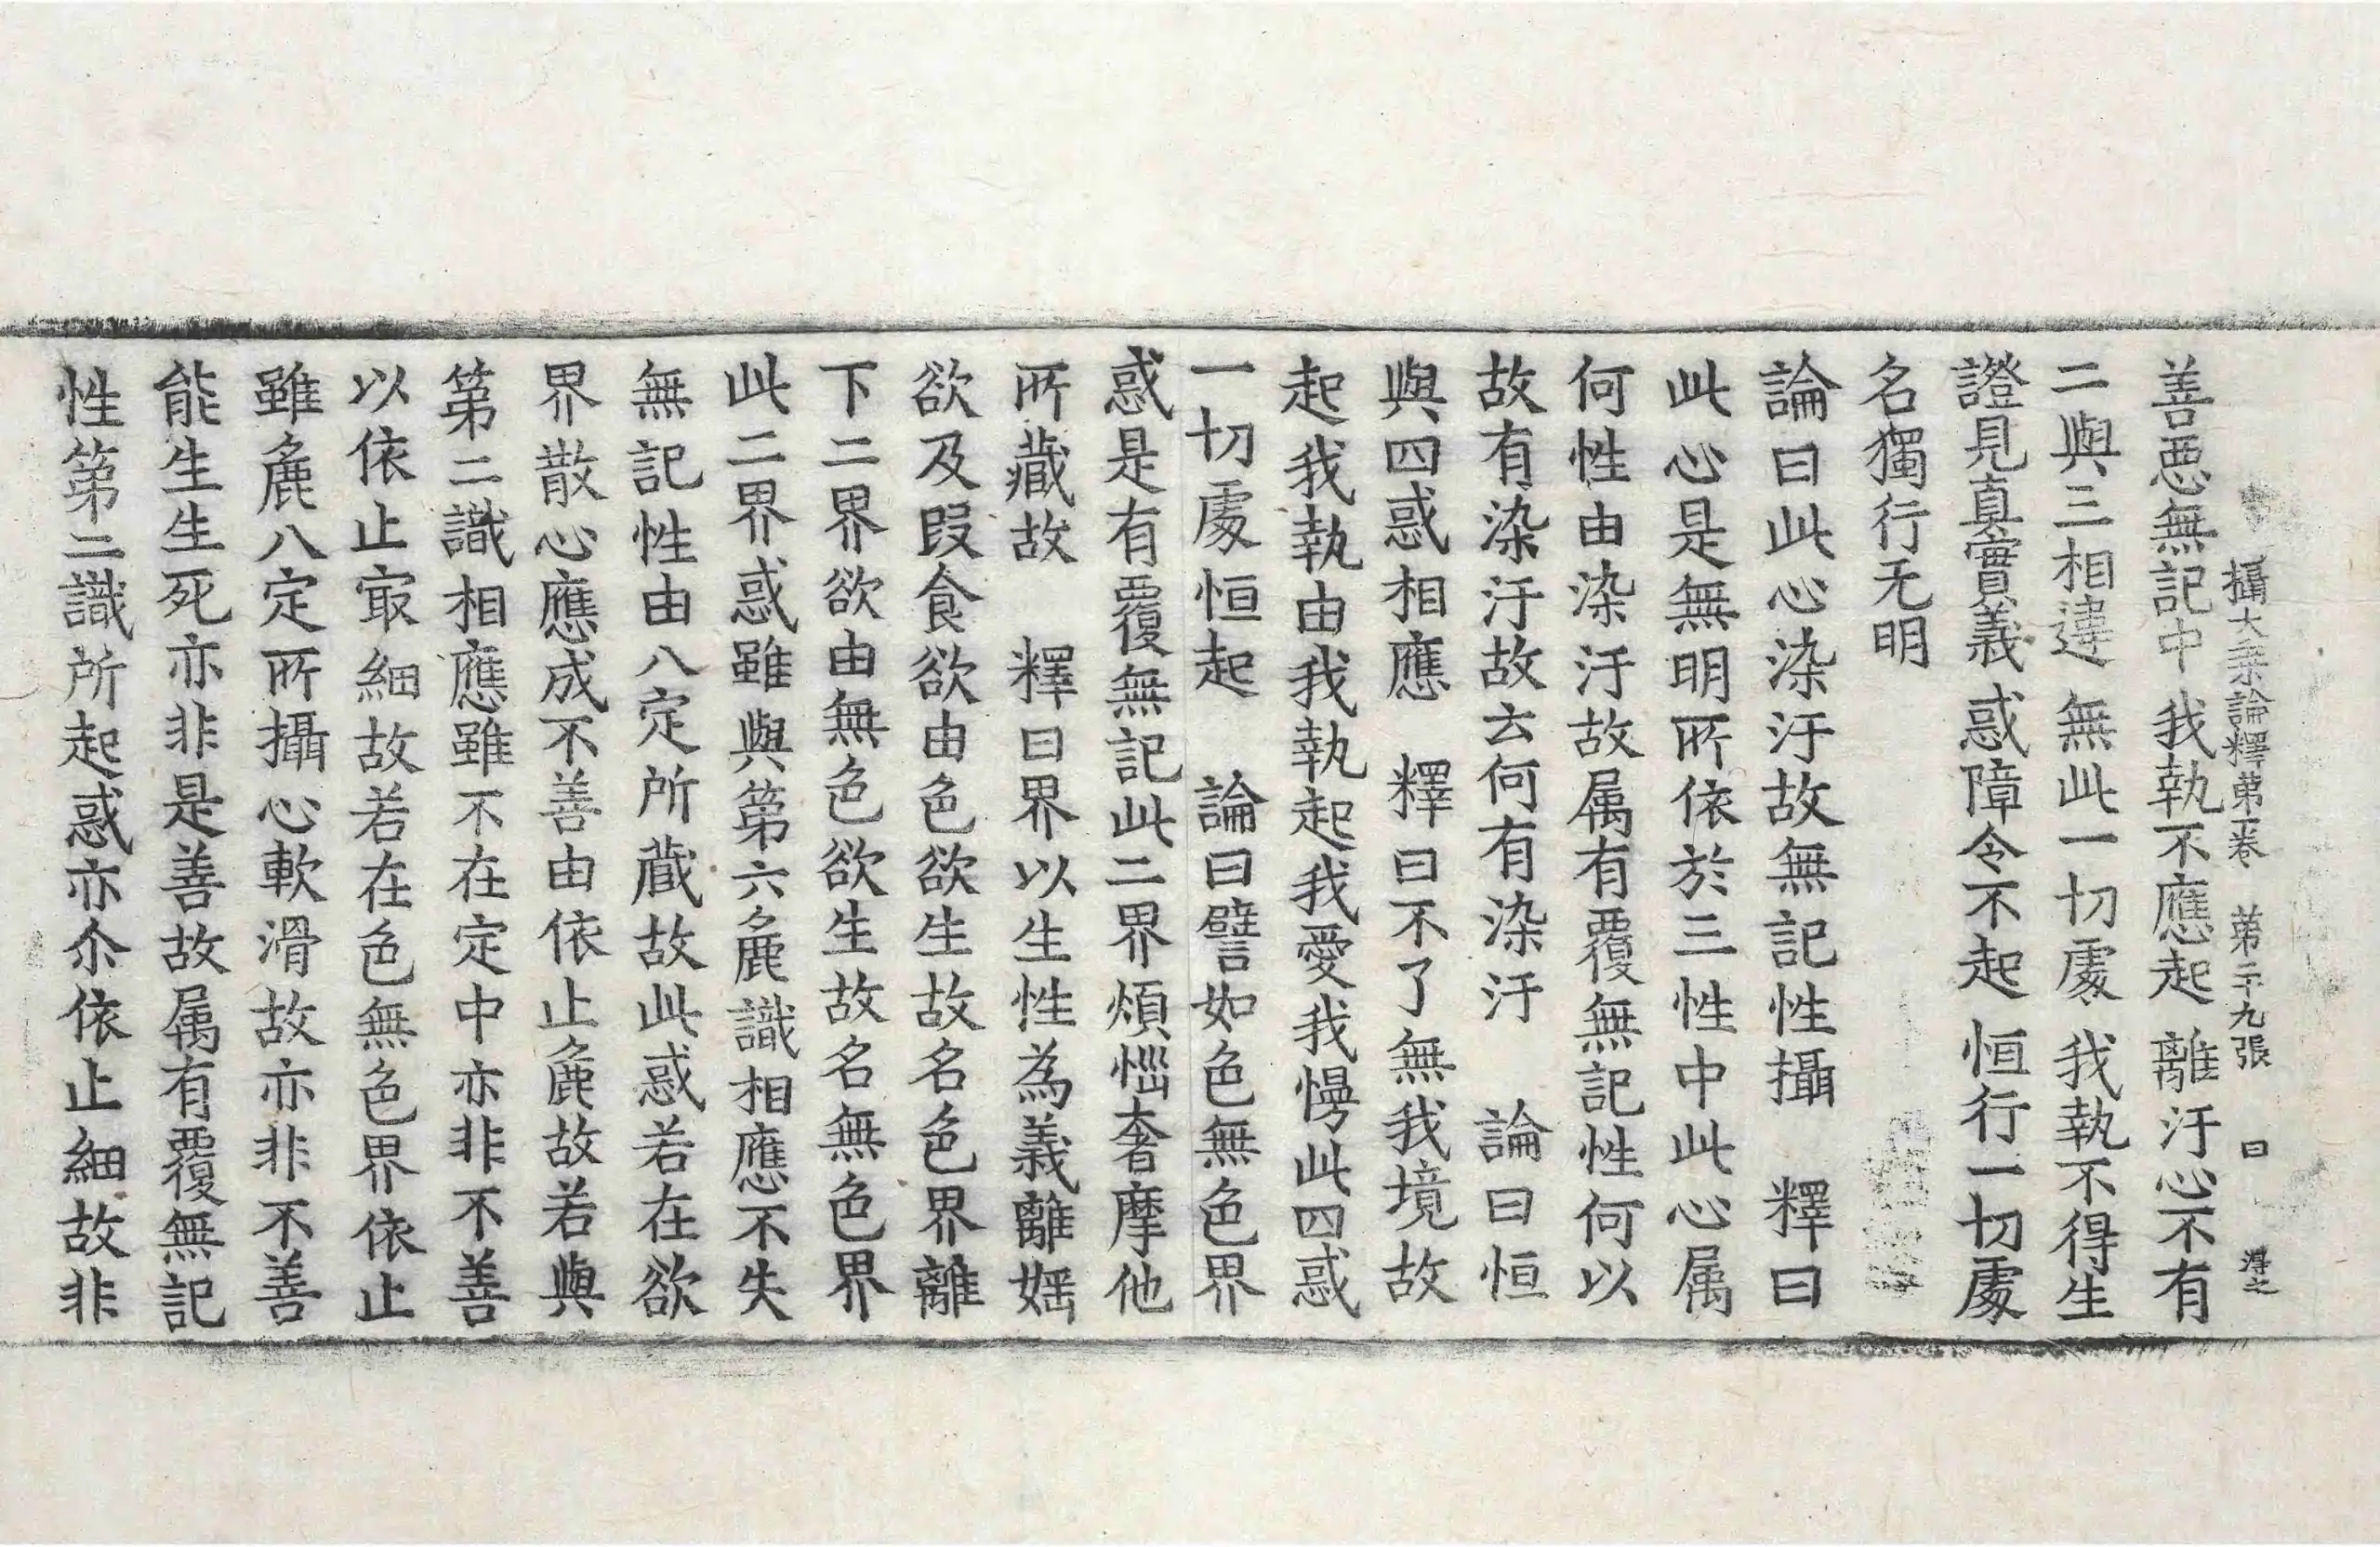 攝大乘論釋第一卷 第二十九張 曰 淂之
善惡無記中我執不應起離汙心不有
二與三相違無此一切處我執不得生
證見真實義惑障令不起恒行一切處
名獨行无明
論曰此心染汙故無記性攝 釋曰
此心是無明所依於三性中此心属
何性由染汙故属有覆無記性何以
故有染汙故云何有染汙 論曰恒
與四惑相應 釋曰不了無我境故
起我執由我執起我愛我慢此四惑
一切處恒起 論曰譬如色無色界
惑是有覆無記此二界煩惱奢摩他
所藏故 釋曰界以生性為義離婬
欲及段食欲由色欲生故名色界離
下二界欲由無色欲生故名無色界
此二界惑雖與第六麁識相應不失
無記性由八定所藏故此惑若在欲
界散心應成不善由依止麁故若與
第二識相應雖不在定中亦非不善
以依止㝡細故若在色無色界依止
雖麁八定所攝心軟滑故亦非不善
能生生死亦非是善故属有覆無記
性第二識所起惑亦尒依止細故非